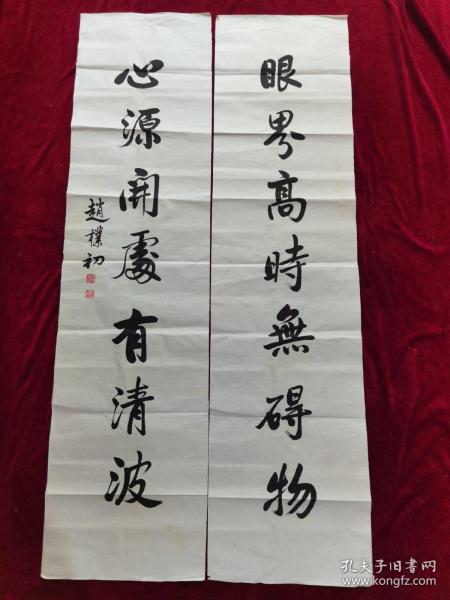 眼界高時無碍物
心源開處有清波
趙樸初
孔夫子旧书网
www.kongfz.com